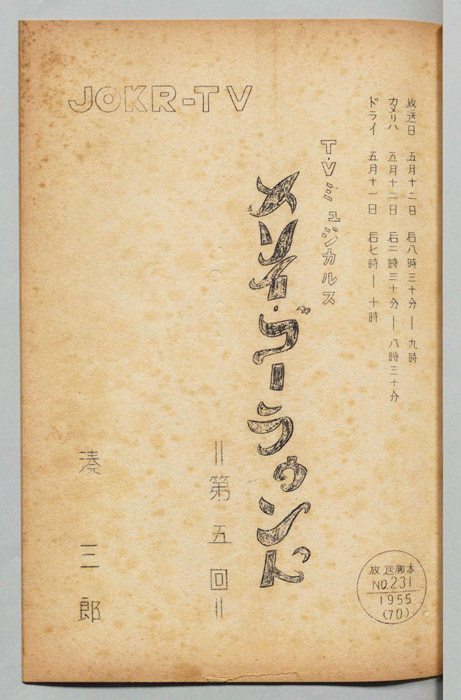 JOKR-TV
放送日 五月十二日 后八時三十分―九時
カメリハ 五月十二日 后二時三十分―八時三十分
ドライ 五月十一日 后七時―十時
T・Vミュジカルス
メリイ・ゴーラウンド
＝第五回＝
湊 三郎
放送脚本
NO.231
1955
(70)